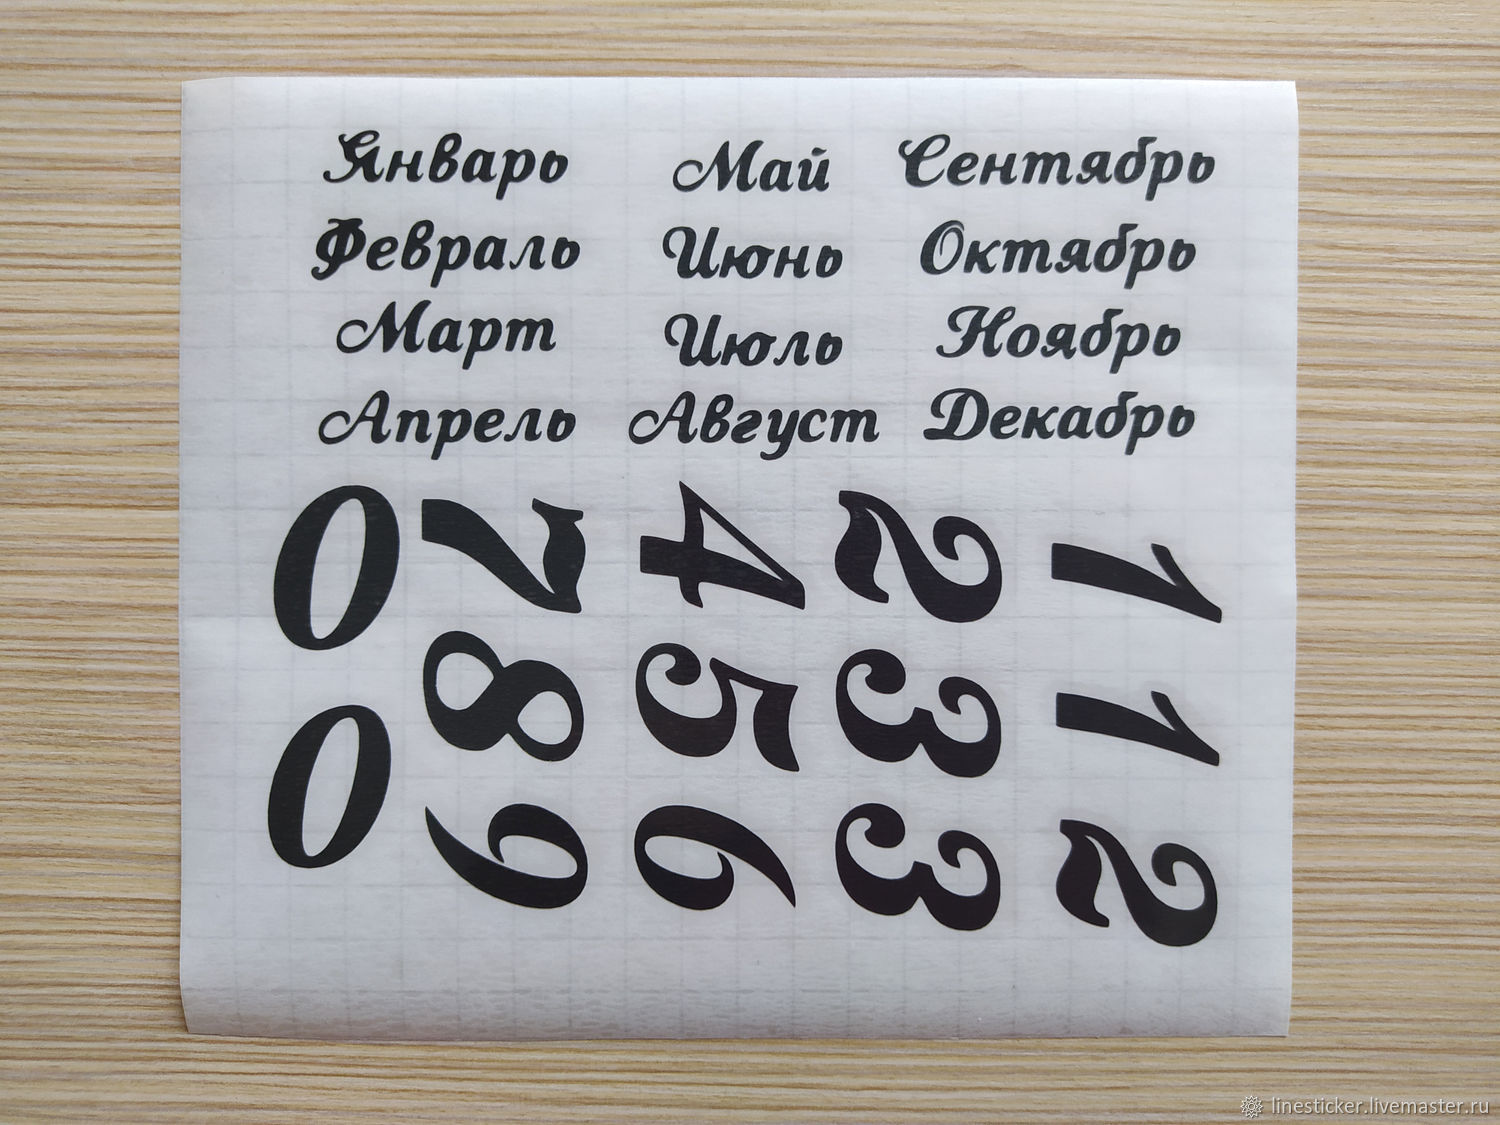 Январь Май Сентябрь
Февраль Июнь Октябрь
Март Июль Ноябрь
Апрель Август Декабрь
0 7 4 2 1
0 8 5 3 1
9 6 3 2
linesticker.livemaster.ru